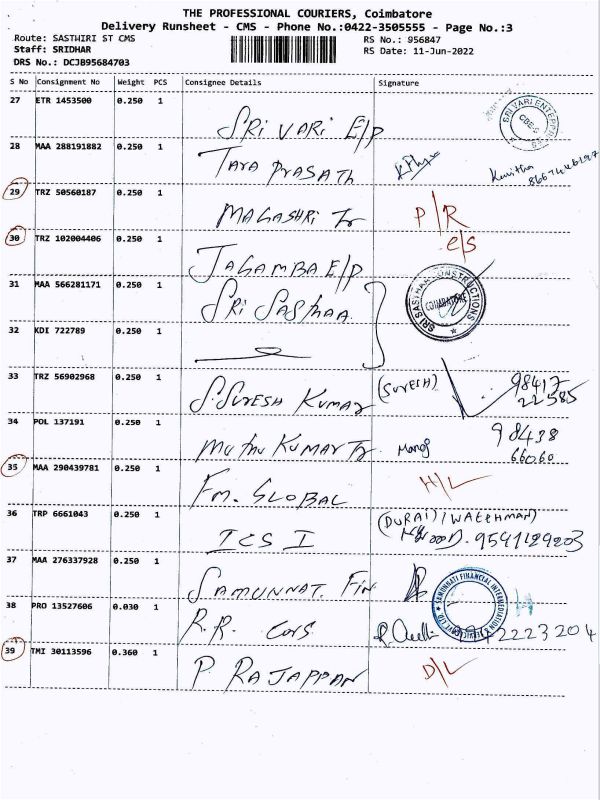 THE PROFESSIONAL COURIERS, Coimbatore
Delivery Runsheet - CMS - Phone No.:0422-3505555 - Page No.:3
Route: SASTHIRI ST CMS
RS No.: 956847
Staff: SRIDHAR
RS Date: 11-Jun-2022
DRS No.: DCJB95684703
S No Consignment No Weight PCS Consignee Details Signature
27 ETR 1453500 0.250 1 SRI VARI E/P SRI VARI ENTERPRISES
28 MAA 288191882 0.250 1 TARA PRASATH
29 TRZ 50560187 0.250 1 MAGASHRI Tr P/R
30 TRZ 102004406 0.250 1 JAGAMBA E/P e/s
31 MAA 566281171 0.250 1 SRI SASTHAA SRI SASTHAA CONSTRUCTIONS COIMBATORE
32 KDI 722789 0.250 1
33 TRZ 56902968 0.250 1 S. SURESH KUMAR (SURESH) 98417 22585
34 POL 137191 0.250 1 MUTHU KUMAR Tr Manoj 98438 66060
35 MAA 290439781 0.250 1 Fm. GLOBAL H/L
36 TRP 6661043 0.250 1 ICS I (DURAI) (WATCHMAN)
37 MAA 276337928 0.250 1 SAMUNNAT. FIN SAMUNNATI FINANCIAL INTERMEDIATION
38 PRO 13527606 0.030 1 R.R. Cons
39 TMI 30113596 0.360 1 P. RAJAPPAN D/L